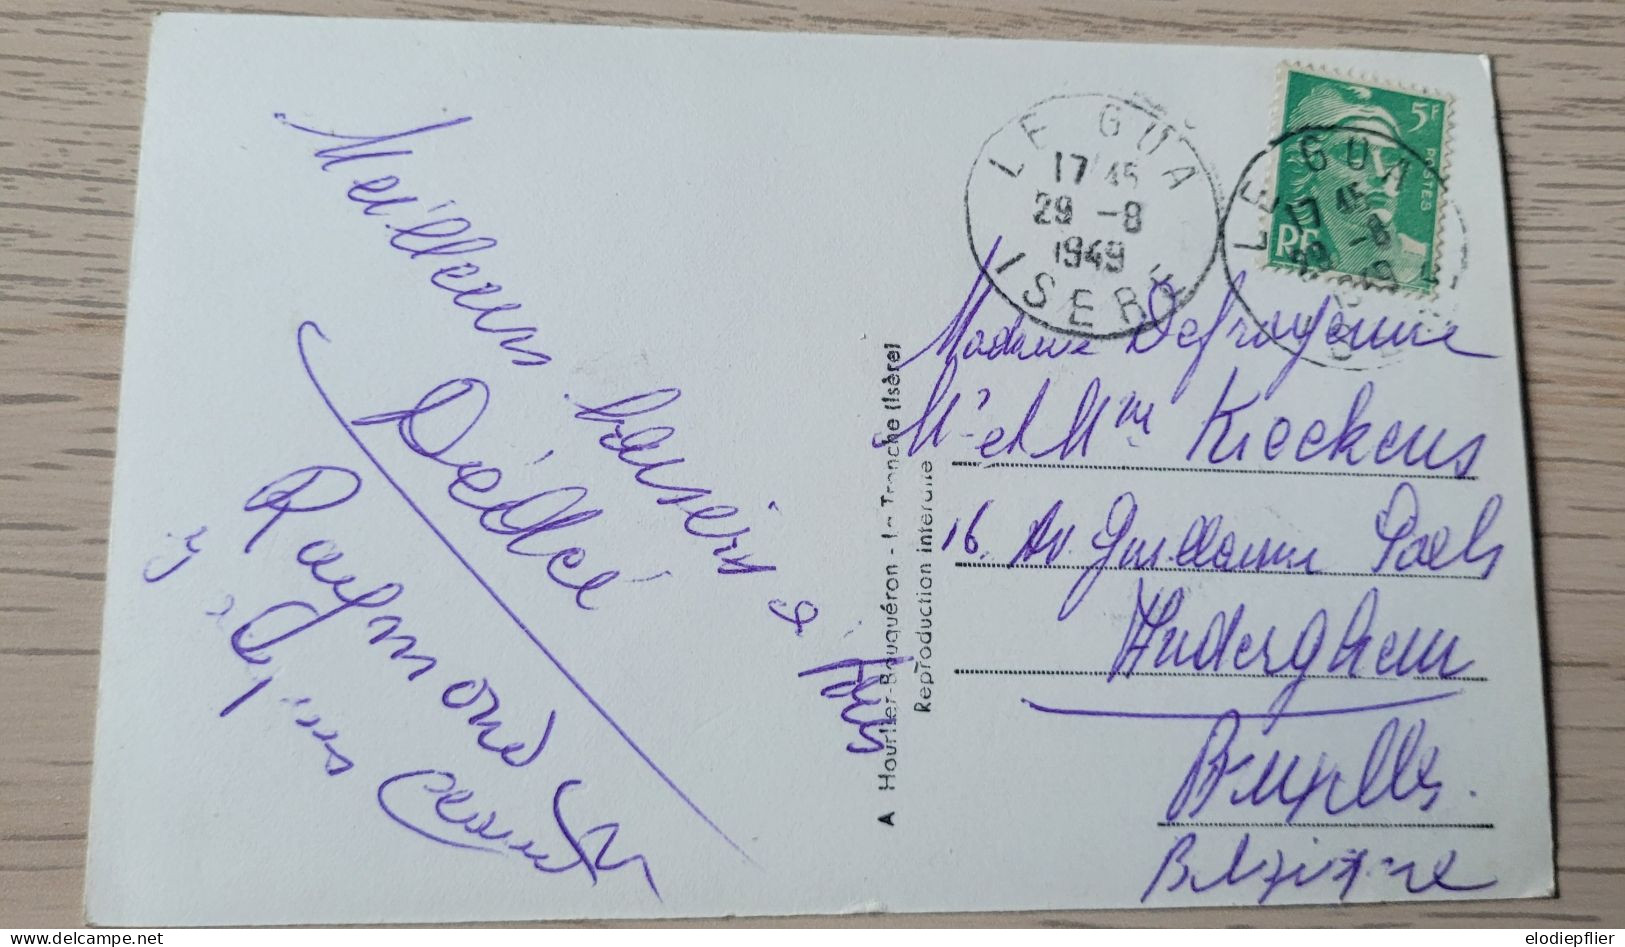 Meilleurs baisers à tous
Dédée
Raymond
LE GUA
17 45
29 -8
1949
ISERE
LE GUA
17 45
29 -8
5F
POSTES
RF
A Hourlier-Bouquéron - La Tronche (Isère)
Reproduction interdite
Madame Defrayenne
Mr et Mme Kieckens
16. Av Guillaume Poels
Auderghem
Bruxelles.
Belgique
delcampe.net
elodiepflier